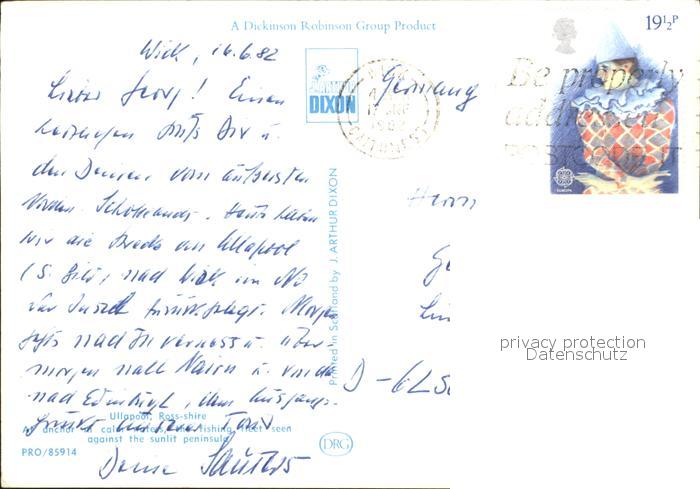 A Dickinson Robinson Group Product
19½P
Wick, 16.6.82
Lieber Georg! Einen
herzlichen Gruß Dir u.
den Deinen vom äußersten
Norden Schottlands. Heute haben
wir die Strecke von Ullapool
(s. Bild) nach Wick im NO
der Insel zurückgelegt. Morgen
geht's nach Inverness u. über-
morgen nach Nairn u. von da
nach Edinburgh, dem Ausgangs-
punkt unserer
ARTHUR DIXON
WICK
1982
CAITHNESS
Be properly
addressed
POSTCODE IT
EUROPA
Germany
Herrn
D-62
Printed in Scotland by J. ARTHUR DIXON
Ullapool, Ross-shire
At anchor in calm waters, the fishing fleet seen
against the sunlit peninsula
PRO/85914
DRG
privacy protection
Datenschutz